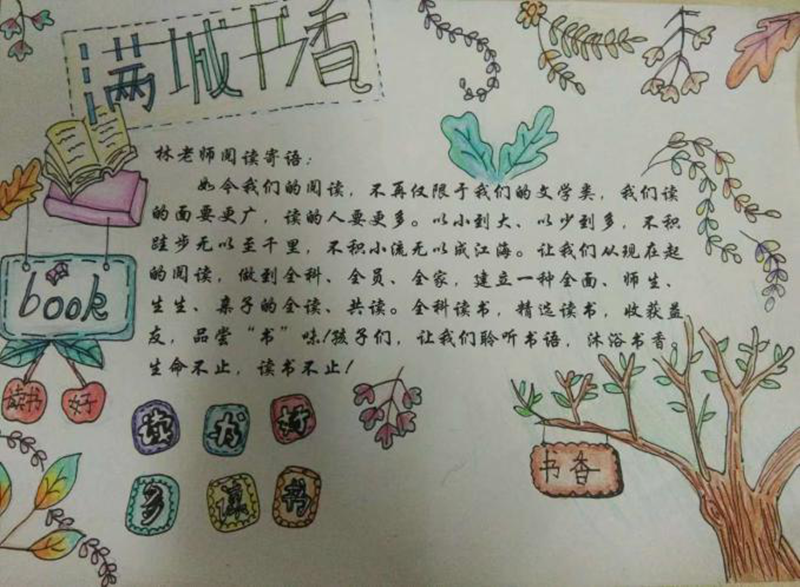 满城书香
林老师阅读寄语：
如今我们的阅读，不再仅限于我们的文学类，我们读
的面要更广，读的人要更多。以小到大、以少到多，不积
跬步无以至千里，不积小流无以成江海。让我们从现在起
的阅读，做到全科、全员、全家，建立一种全面、师生、
生生、亲子的全读、共读。全科读书，精选读书，收获益
友，品尝“书”味！孩子们，让我们聆听书语，沐浴书香。
生命不止，读书不止！
book
读书 好
读 书 好
多 读 书
书香